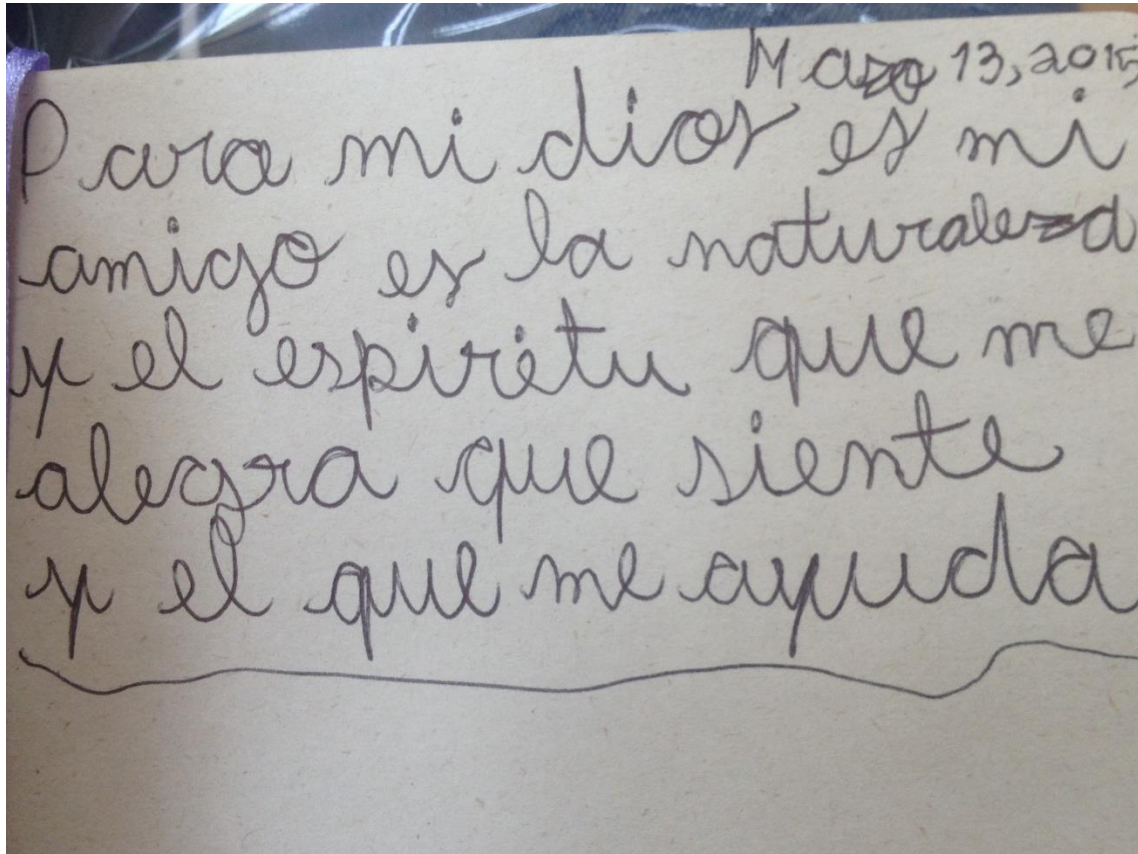 Mazo 13, 2015
Para mi dios es mi
amigo es la naturaleza
y el espiretu que me
alegra que siente
y el que me ayuda